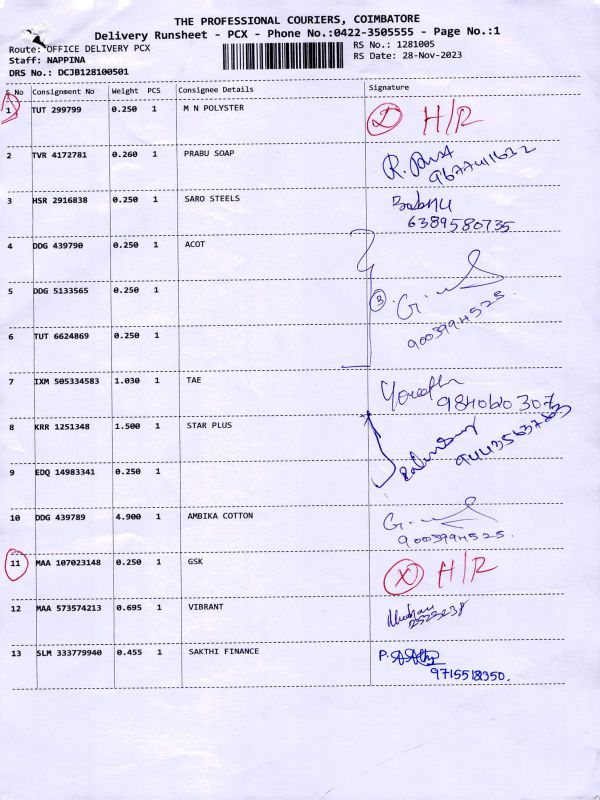 THE PROFESSIONAL COURIERS, COIMBATORE
Delivery Runsheet - PCX - Phone No.:0422-3505555 - Page No.:1
Route: OFFICE DELIVERY PCX RS No.: 1281005
Staff: NAPPINA RS Date: 28-Nov-2023
DRS No.: DCJB128100501
S No Consignment No Weight PCS Consignee Details Signature
1 TUT 299799 0.250 1 M N POLYSTER H/R
2 TVR 4172781 0.260 1 PRABU SOAP
3 HSR 2916838 0.250 1 SARO STEELS Babnu
6389580735
4 DDG 439790 0.250 1 ACOT
5 DDG 5133565 0.250 1 3 G.
6 TUT 6624869 0.250 1 9003994525
7 IXM 505334583 1.030 1 TAE
8 KRR 1251348 1.500 1 STAR PLUS
9 EDQ 14983341 0.250 1
10 DDG 439789 4.900 1 AMBIKA COTTON G.
9003994525.
11 MAA 107023148 0.250 1 GSK X H/R
12 MAA 573574213 0.695 1 VIBRANT
13 SLM 333779940 0.455 1 SAKTHI FINANCE P.
9715518350.